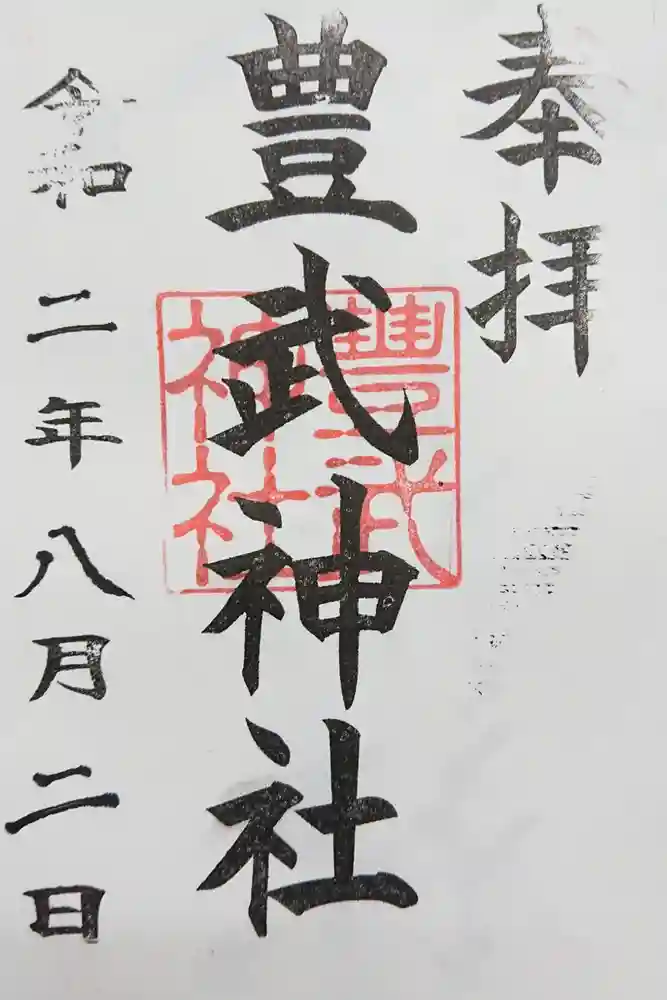 奉拝
豊武神社
豊武
神社
令和二年八月二日